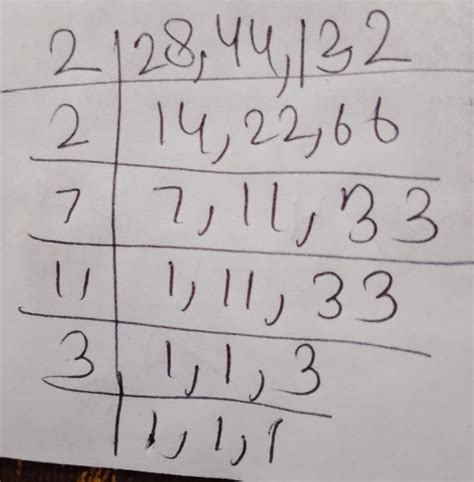 2 | 28, 44, 132
2 | 14, 22, 66
7 | 7, 11, 33
11 | 1, 11, 33
3 | 1, 1, 3
| 1, 1, 1